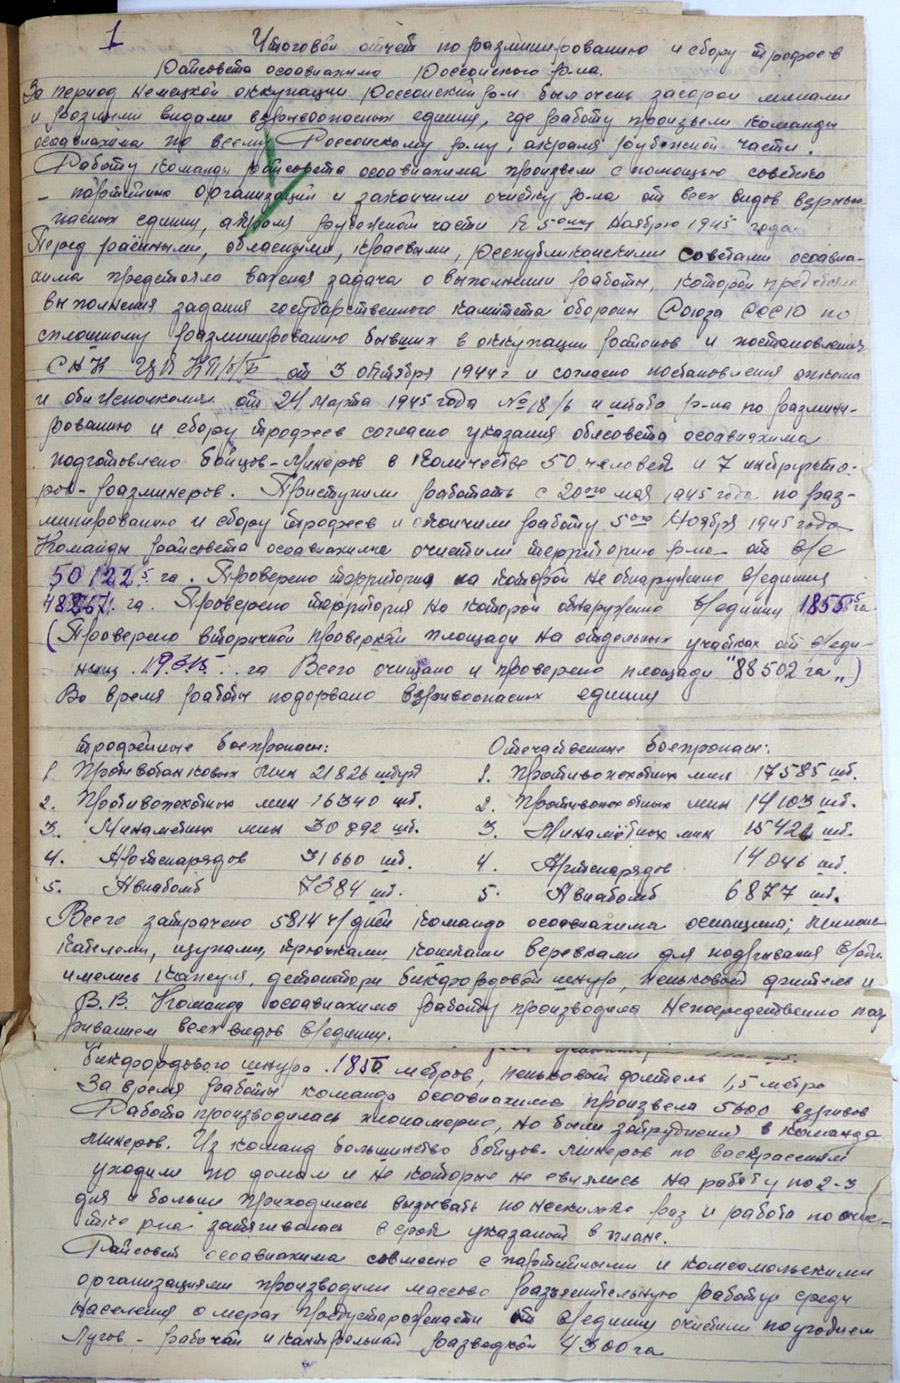 1
Итоговой отчет по разминированию и сбору трофеев
Райсовета осоавиахима Россонского р-на.
За период немецкой оккупации Россонский р-н был очень засорен минами
и разными видами взрывоопасных единиц, где работу произвели команды
осоавиахима по всему Россонскому р-ну, акромя рубежной части.
Работу команды райсовета осоавиахима произвели с помощью советско
- партийных организаций и закончили очистку р-на от всех видов взрыво-
пасных единиц, акромя рубежной части К 5ому Ноябрю 1945 года.
Перед районными, обласными, краевыми, республиконскими советами осоавиа-
хима предстояла важная задача о выполнении работы, которой
выполнения задания государственного камитета обороны Союза ССР Ю по
сплошному разминированию бывших в оккупации районов и постановления
СНК ЦК КП/б/Б от 3 октября 1944 г и согласно постановления
и облисполкома от 21 марта 1945 года № 18/6 и штаба р-на по размини-
рованию и сбору трофеев согласно указания облсовета осоавиахима
подготовлено бойцов-минеров в количестве 50 человек и 7 инструкто-
ров-разминеров. Приступили работать с 20го мая 1945 года по раз-
минированию и сбору трофеев и окончили работу 5ого Ноября 1945 года
Команды райсовета осоавиахима очистили территорию р-на от в/е
50122,5 га. Проверено территория на которой не обнаружено в/единиц
га. Проверено территория на которой обнаружено в/единиц га
(Проверено вторичной проверкой площади на отдельных участках от в/еди-
ниц 19315 га Всего очищано и проверено площади "88502 га")
Во время работы подорвано взривоопасных единиц
трофейные боеприпасы: Отечественные боеприпасы:
1. Противотанковых мин 21826 штук 1. Противопехотных мин 17585 шт.
2. Противопехотных мин 16340 шт. 2. Противопехотных мин 14103 шт.
3. Минаметных мин 30892 шт. 3. Минамётных мин 15426 шт.
4. Артснарядов 31660 шт. 4. Артснарядов 14046 шт.
5. Авиабомб 7384 шт. 5. Авиабомб 6877 шт.
Всего затрачено 5814 ч/дней команда осоавиахима оснащина; меноис-
кателем, щупами, крючками кошками веревками для подрывания в/един.
имелись капсуля, детонатори бикфордовой шнур, пеньковой фитиль и
В.В. Команда осоавиахима работу производила непосредственно под-
риванием всех видов в/единиц.
Бикфордового шнура 1850 метров, пеньковой фитиль 1,5 метра
За время работы команда осоавиахима произвела 5600 взривов
Работа производилась планомерно, но были затруднения в команде
минеров. Из команд большинство бойцов-минеров по воскрессениям
уходили по домам и не которые не евились на работу по 2-3
дня и больши приходилась вызывать по несколько раз и работа по очис-
тке р-на затягивалась в срок указаный в плане.
Райсовет осоавиахима совмесно с партийными и комсомольскими
организациями производили массово разъяснительную работу среди
населения о мерах предусторожности от в/единиц очистили по угодием
Лугов - рабочей и кантрольной разведкой 4300 га